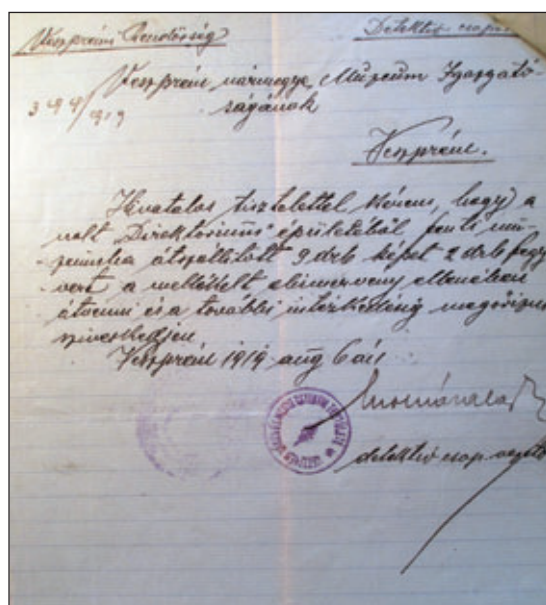 Veszprém Rendőrség
Detektiv csop
Veszprém vármegye Múzeum Igazgató-
ságának
344/919
Veszprém.
Hivatalos tisztelettel kérem, hogy a
volt "Direktorium" épületéből fenti mú-
zeumba átszállított 9 drb képet 2 drb fegy-
vert a mellékelt elismervény ellenében
átvenni és a további intézkedésig megőrizni
sziveskedjen
Veszprém 1919 aug 6 án
detektiv csop. vezető